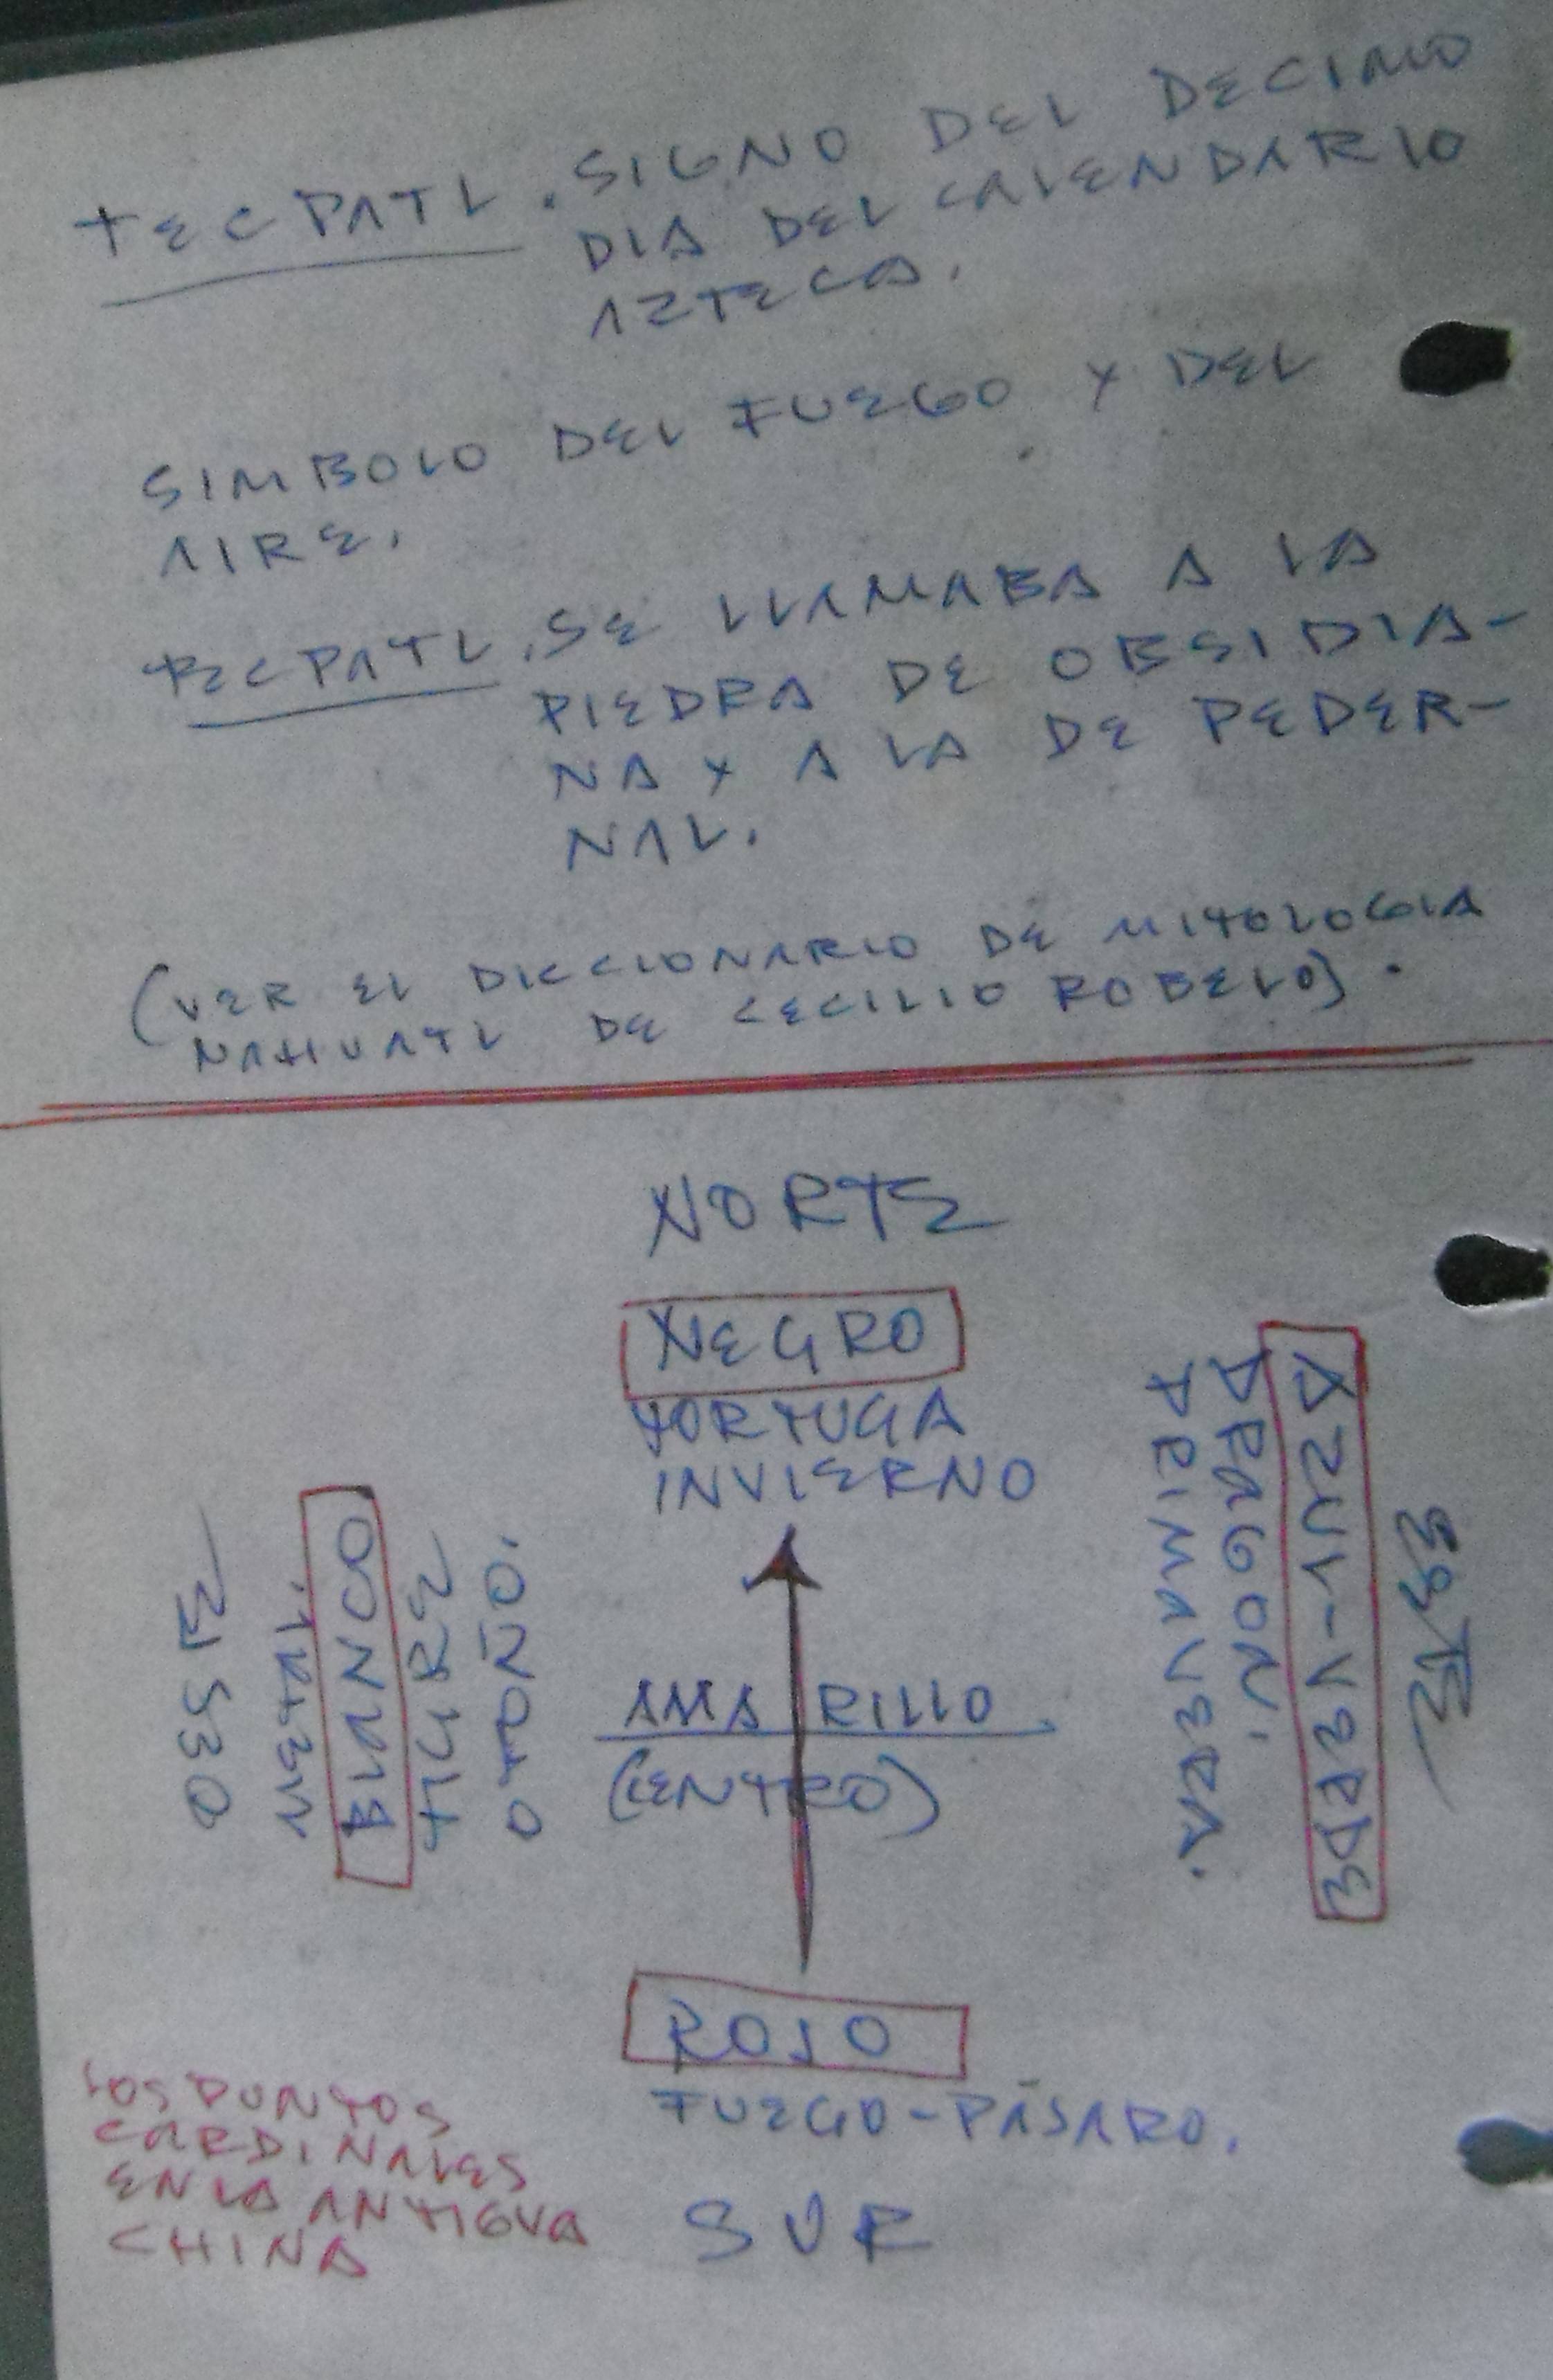 TECPATL. SIGNO DEL DECIMO
DIA DEL CALENDARIO
AZTECA.
SIMBOLO DEL FUEGO Y DEL
AIRE.
TECPATL. SE LLAMABA A LA
PIEDRA DE OBSIDIA-
NA Y A LA DE PEDER-
NAL.
(VER EL DICCIONARIO DE MITOLOGIA
NAHUATL DE CECILIO ROBELO).
NORTE
NEGRO
TORTUGA
INVIERNO
OESTE
METAL.
BLANCO
TIGRE
OTOÑO.
AMARILLO
(CENTRO)
PRIMAVERA.
DRAGON.
AZUL-VERDE
ESTE
ROJO
FUEGO-PÁJARO.
SUR
LOS PUNTOS
CARDINALES
EN LA ANTIGUA
CHINA